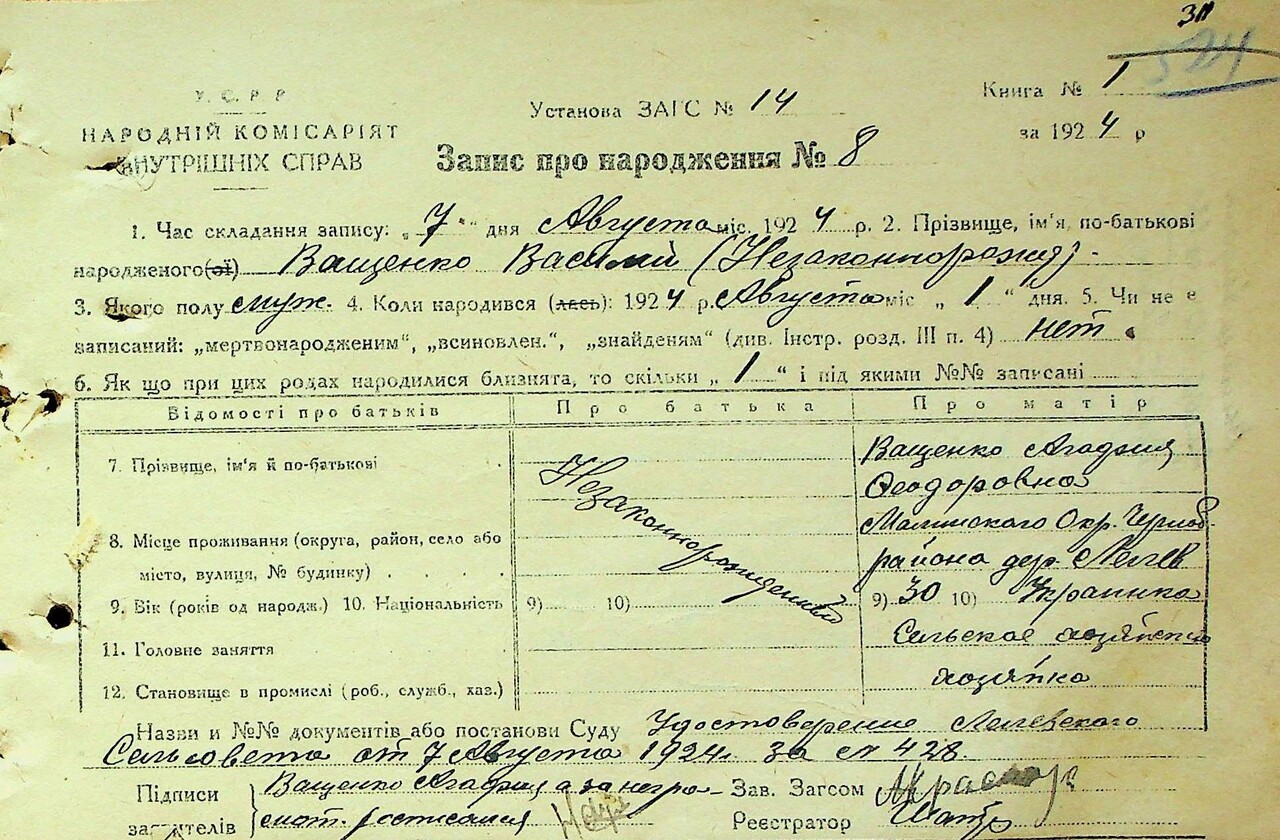 524
У. С. Р. Р.
НАРОДНІЙ КОМІСАРІЯТ
ВНУТРІШНІХ СПРАВ
Установа ЗАГС № 14
Книга № 1
за 1924 р
Запис про народження № 8
1. Час складання запису: „7“ дня Августа міс. 1924 р. 2. Прізвище, ім'я, по-батькові
народженого(ої) Ващенко Василий (Незаконнорожд).
3. Якого полу муж. 4. Коли народився (лась): 1924 р. Августа міс „1“ дня. 5. Чи не є
записаний: „мертвонародженим“, „всиновлен.“, „знайденям“ (див. Інстр. розд. III п. 4) нет
6. Як що при цих родах народилися близнята, то скільки „1“ і під якими №№ записані
Відомості про батьків Про батька Про матір
7. Прізвище, ім'я й по-батькові Незаконнорожденный Ващенко Агафия
Феодоровна
8. Місце проживання (округа, район, село або Малинского Окр. Черноб.
місто, вулиця, № будинку) района дер. Лелев
9. Вік (років од народж.) 10. Національність 9) 10) 9) 30 10) Украинка
11. Головне заняття Сельское хозяйство
12. Становище в промислі (роб., служб., хаз.) хозяйка
Назви и №№ документів або постанови Суду Удостоверение Лелевского
Сельсовета от 7 Августа 1924г. за № 428
Підписи Ващенко Агафия а за негра- Зав. Загсом
заявителів мот. росписался Реєстратор